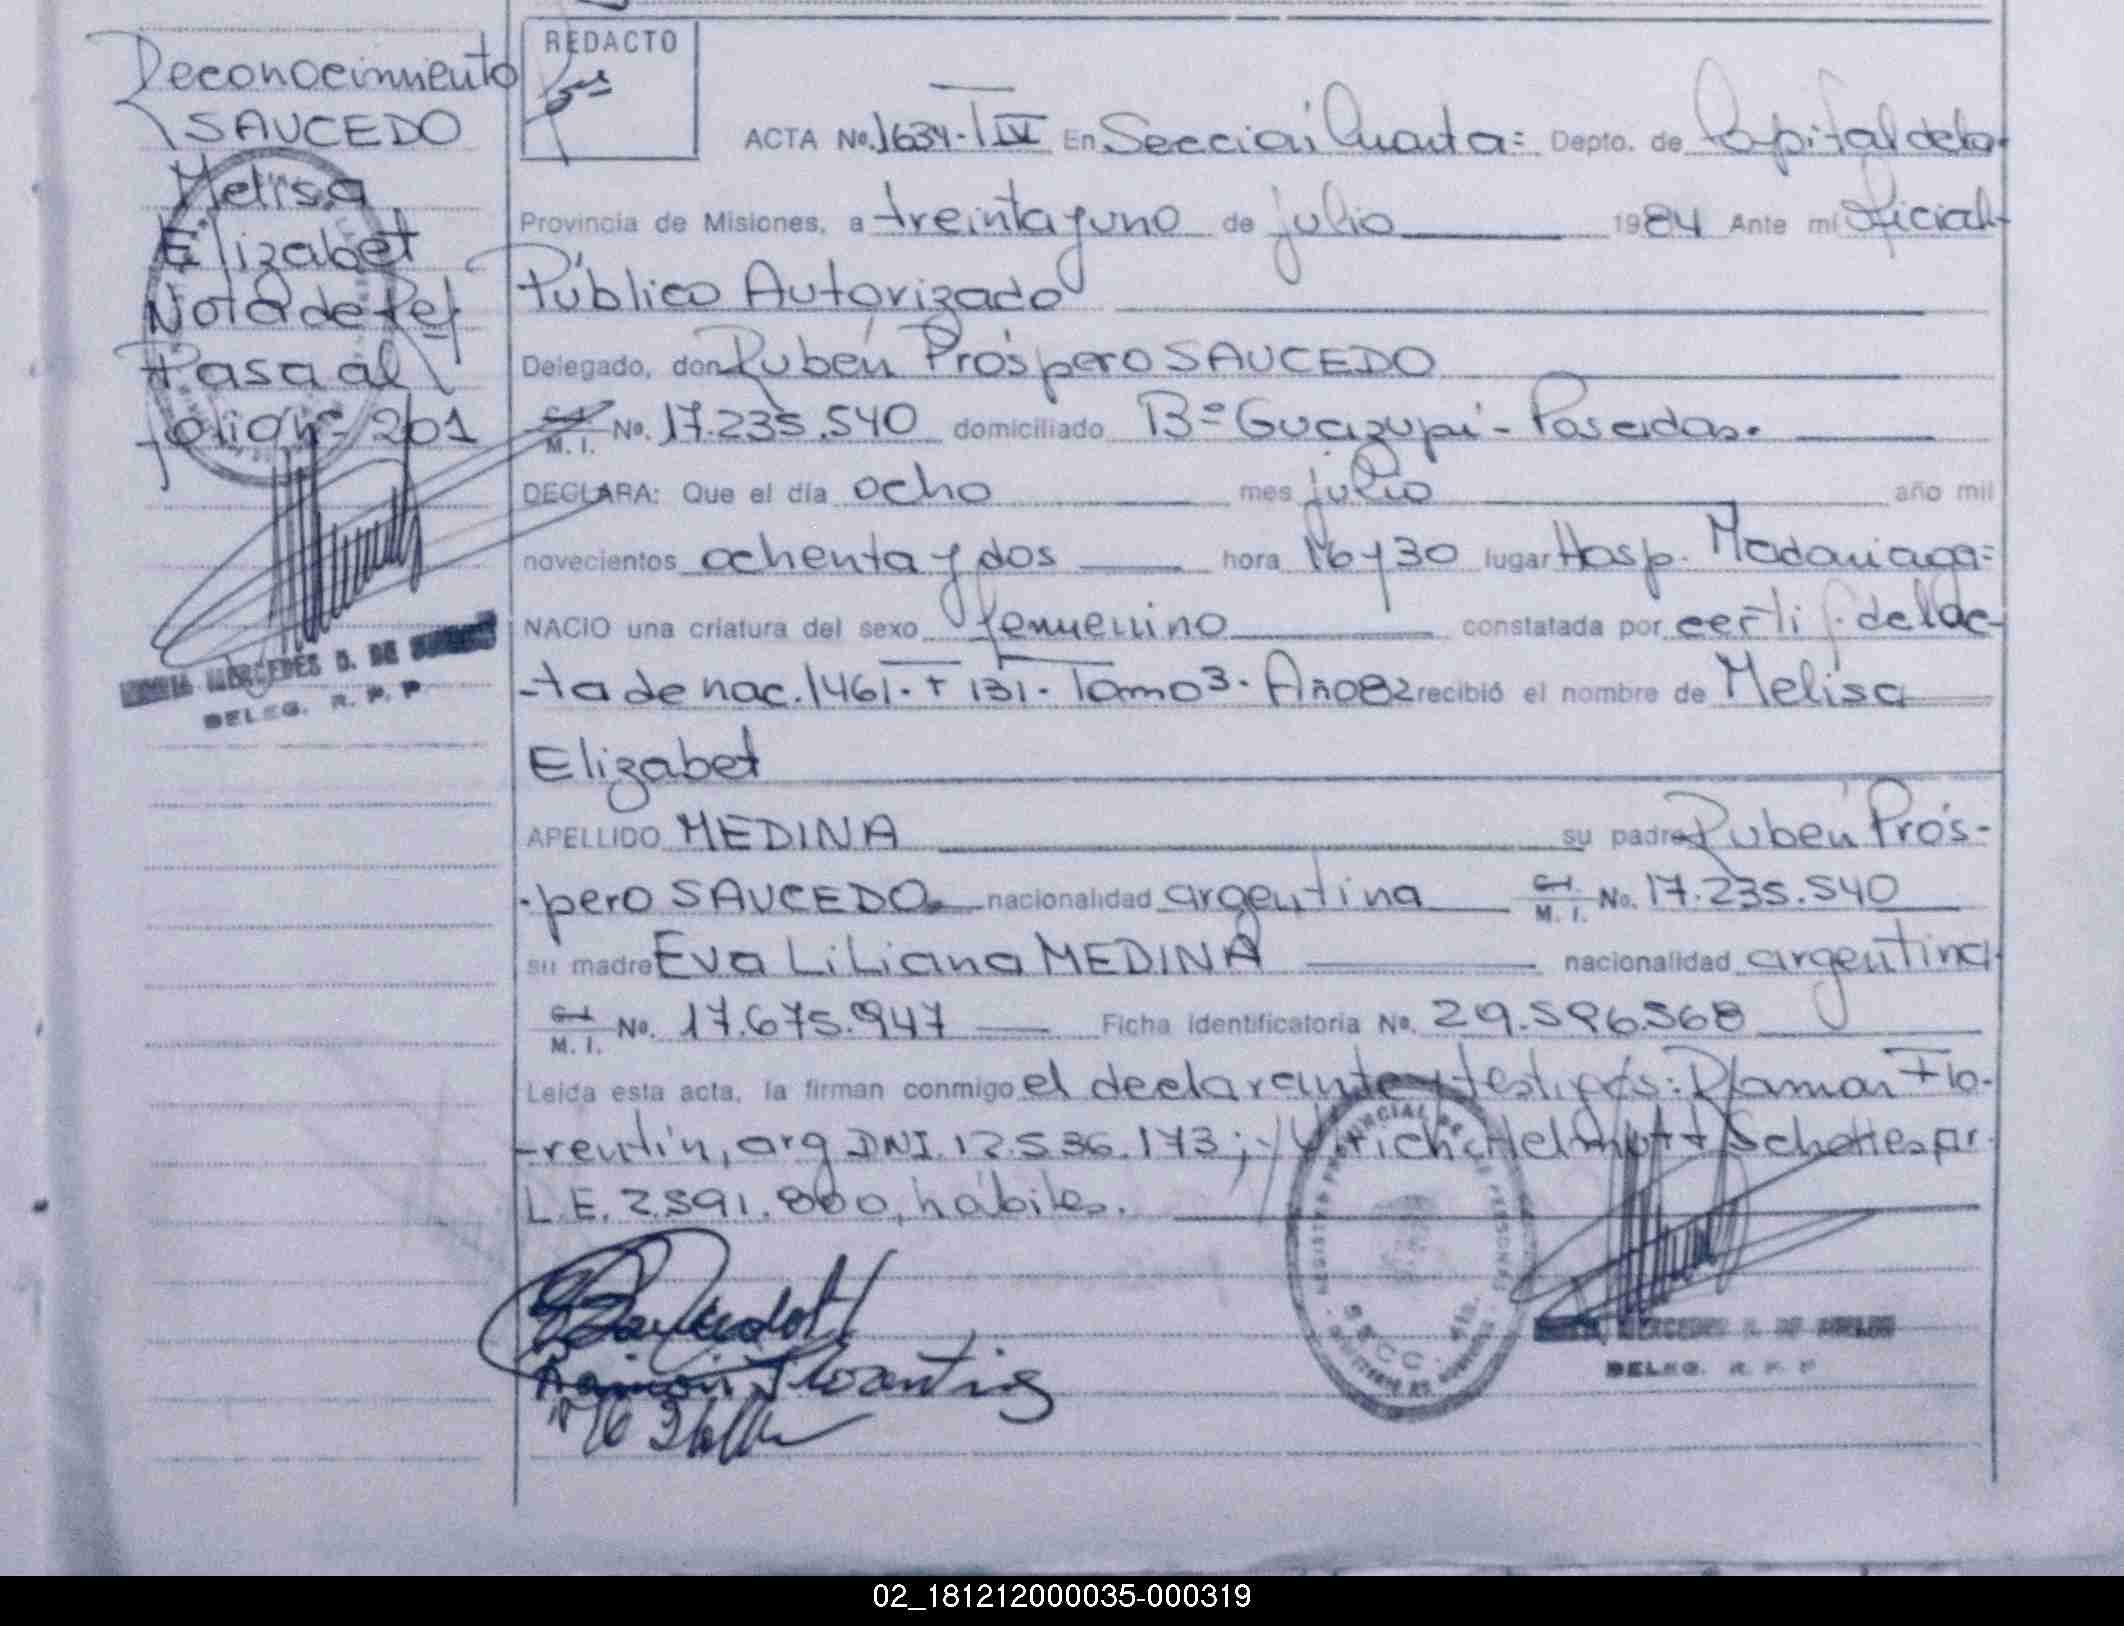 Reconocimiento
SAUCEDO
Melisa
Elizabet
Nota de Ref
Pasa al
folio nº 201
MERCEDES D. DE
DELEG. R. P. P
REDACTO
ACTA No. 1634-T IV En Sección Cuarta= Depto. de Capital de la
Provincia de Misiones, a treinta y uno de julio 1984 Ante mí Oficial
Público Autorizado
Delegado, don Rubén Próspero SAUCEDO
C. I. M. I. No. 17.235.540 domiciliado Bº Guazupi - Posadas.
DECLARA: Que el día ocho mes julio año mil
novecientos ochenta y dos hora 16 y 30 lugar Hosp. Madariaga=
NACIO una criatura del sexo femenino constatada por certif. del ac-
-ta de nac. 1461. F 131. Tomo 3. Año 82 recibió el nombre de Melisa
Elizabet
APELLIDO MEDINA su padre Rubén Prós-
-pero SAUCEDO. nacionalidad argentina C. I. M. I. No. 17.235.540
su madre Eva Liliana MEDINA nacionalidad argentina
C. I. M. I. No. 17.675.947 Ficha identificatoria No. 29.596.568
Leída esta acta, la firman conmigo el declarante y testigos: Ramon Flo-
-rentín, arg DNI. 12.536.173; y Ulrich Helmutt ar.
L.E. 2.591.800, hábiles.
REGISTRO PROVINCIAL DE LAS PERSONAS
Ramón Florentín
MERCEDES D. DE
DELEG. R. P. P
02_181212000035-000319